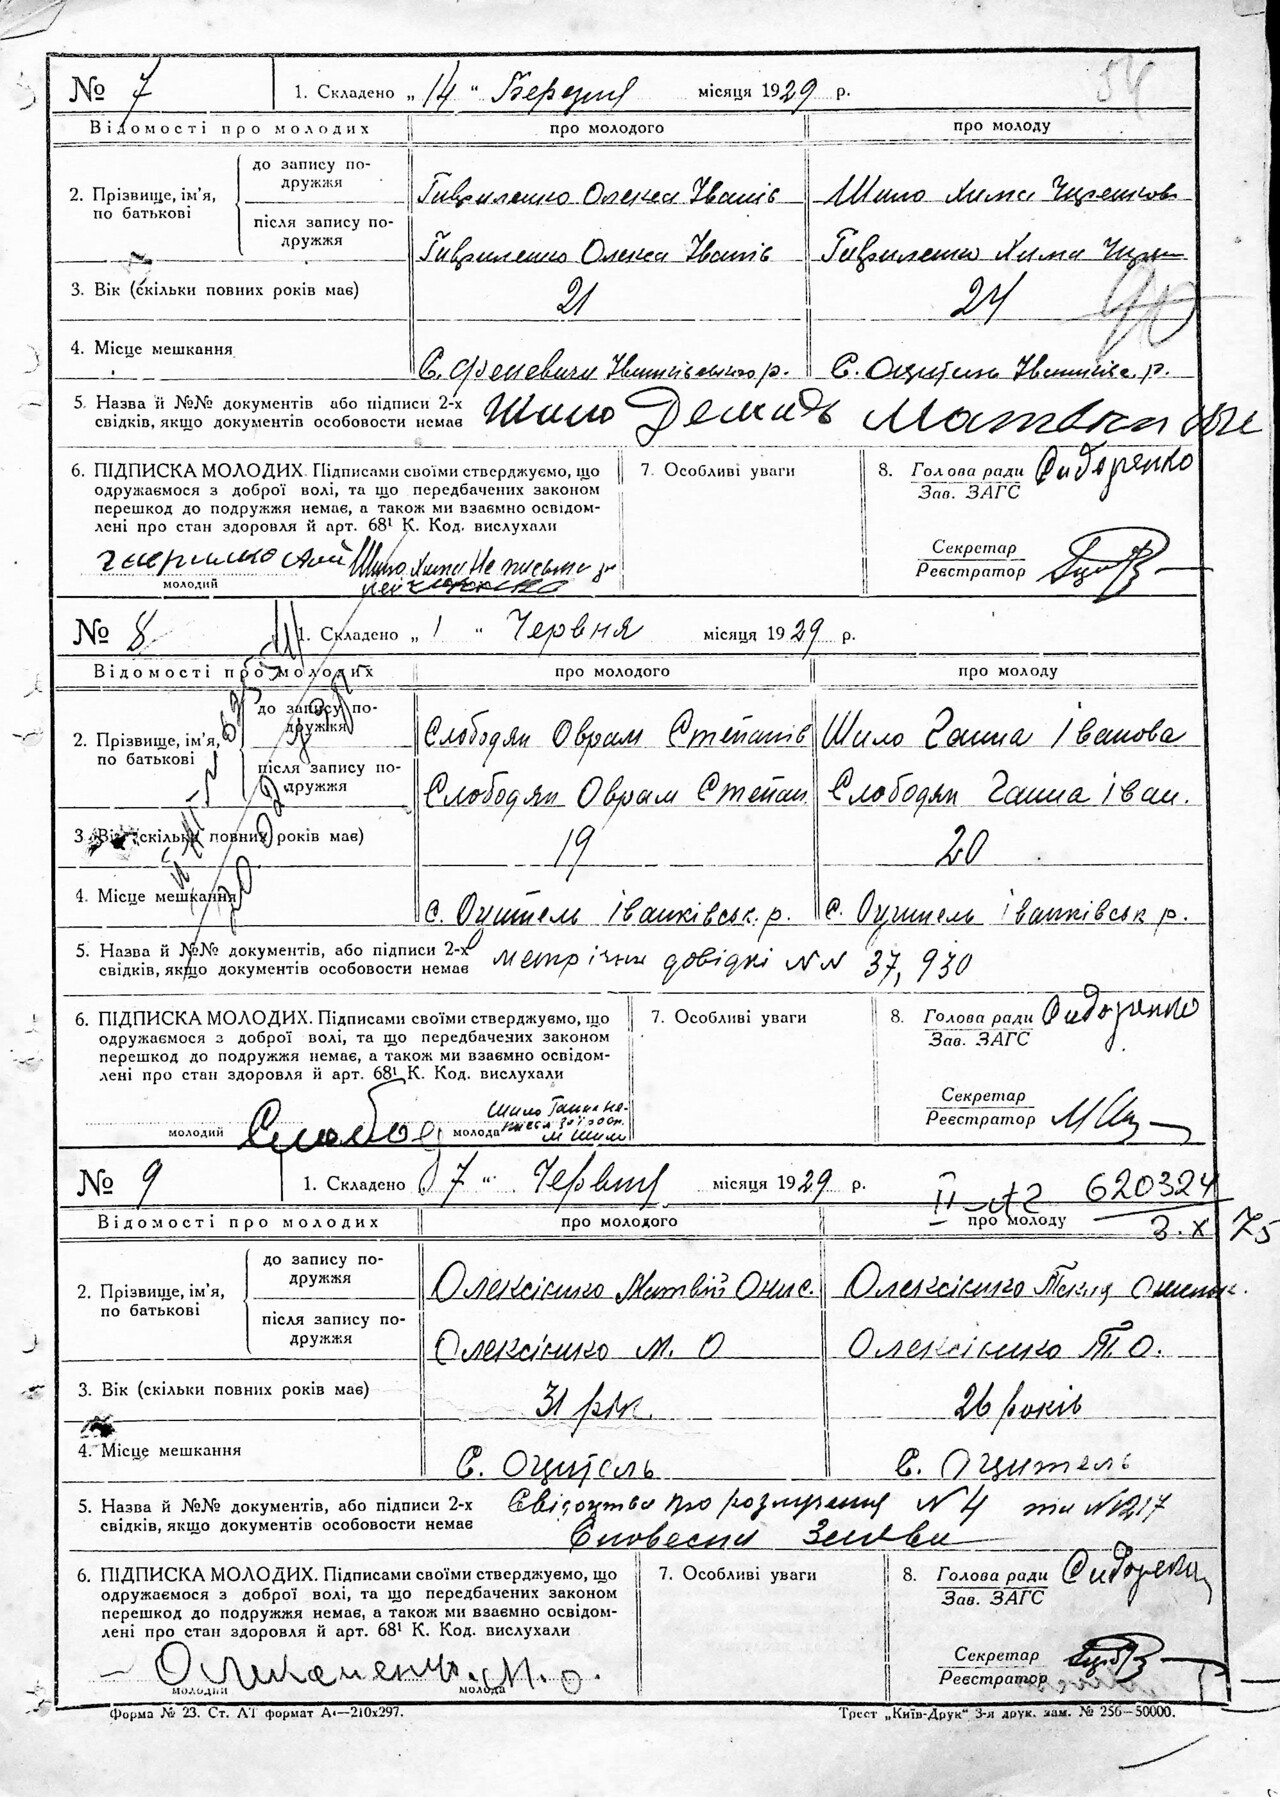 54
№ 7 1. Складено „ 14 “ Березня місяця 1929 р.
Відомості про молодих про молодого про молоду
2. Прізвище, ім'я, по батькові
до запису подружжя Гавриленко Олекса Іванів Шило Хима
після запису подружжя Гавриленко Олекса Іванів Гавриленко Хима
3. Вік (скільки повних років має) 21 24
4. Місце мешкання С. Феневичи Іванківського р. С. Оцитель Іванківск. р.
5. Назва й №№ документів або підписи 2-х
свідків, якщо документів особовости немає Шило Демидь
6. ПІДПИСКА МОЛОДИХ. Підписами своїми стверджуємо, що
одружаємося з доброї волі, та що передбачених законом
перешкод до подружжя немає, а також ми взаємно освідом-
лені про стан здоровля й арт. 68¹ К. Код. вислухали
Шило Хима Не письмена за
молодий
7. Особливі уваги
8. Голова ради Сидоренко
Зав. ЗАГС
Секретар
Реєстратор
№ 8 1. Складено „ 1 “ Червня місяця 1929 р.
Відомості про молодих про молодого про молоду
2. Прізвище, ім'я, по батькові
до запису подружжя Слободян Оврам Степанів Шило Ганна Іванова
після запису подружжя Слободян Оврам Степан. Слободян Ганна Іван.
3. Вік (скільки повних років має) 19 20
4. Місце мешкання с. Оцитель Іванківськ. р. с. Оцитель Іванківськ р.
5. Назва й №№ документів, або підписи 2-х
свідків, якщо документів особовости немає метричні довідкі NN 37, 930
6. ПІДПИСКА МОЛОДИХ. Підписами своїми стверджуємо, що
одружаємося з доброї волі, та що передбачених законом
перешкод до подружжя немає, а також ми взаємно освідом-
лені про стан здоровля й арт. 68¹ К. Код. вислухали
молодий молода Шило Ганна
М Шило
7. Особливі уваги
8. Голова ради Сидоренко
Зав. ЗАГС
Секретар
Реєстратор
№ 9 1. Складено „ 7 “ Червня місяця 1929 р.
620324
Відомості про молодих про молодого про молоду
2. Прізвище, ім'я, по батькові
до запису подружжя Олексієнко Матвій Онис. Олексієнко Текля
після запису подружжя Олексієнко М. О Олексієнко Т. О.
3. Вік (скільки повних років має) 31 рік. 26 років
4. Місце мешкання С. Оцитель С. Оцитель
5. Назва й №№ документів, або підписи 2-х
свідків, якщо документів особовости немає Свідоцтва про розлучення N 4 та N 217
Словесна Заява
6. ПІДПИСКА МОЛОДИХ. Підписами своїми стверджуємо, що
одружаємося з доброї волі, та що передбачених законом
перешкод до подружжя немає, а також ми взаємно освідом-
лені про стан здоровля й арт. 68¹ К. Код. вислухали
М. О.
молодий молода
7. Особливі уваги
8. Голова ради Сидоренко
Зав. ЗАГС
Секретар
Реєстратор
Форма № 23. Ст. ЛТ формат А4—210x297.
Трест „Київ-Друк“ 3-я друк. зам. № 256—50000.